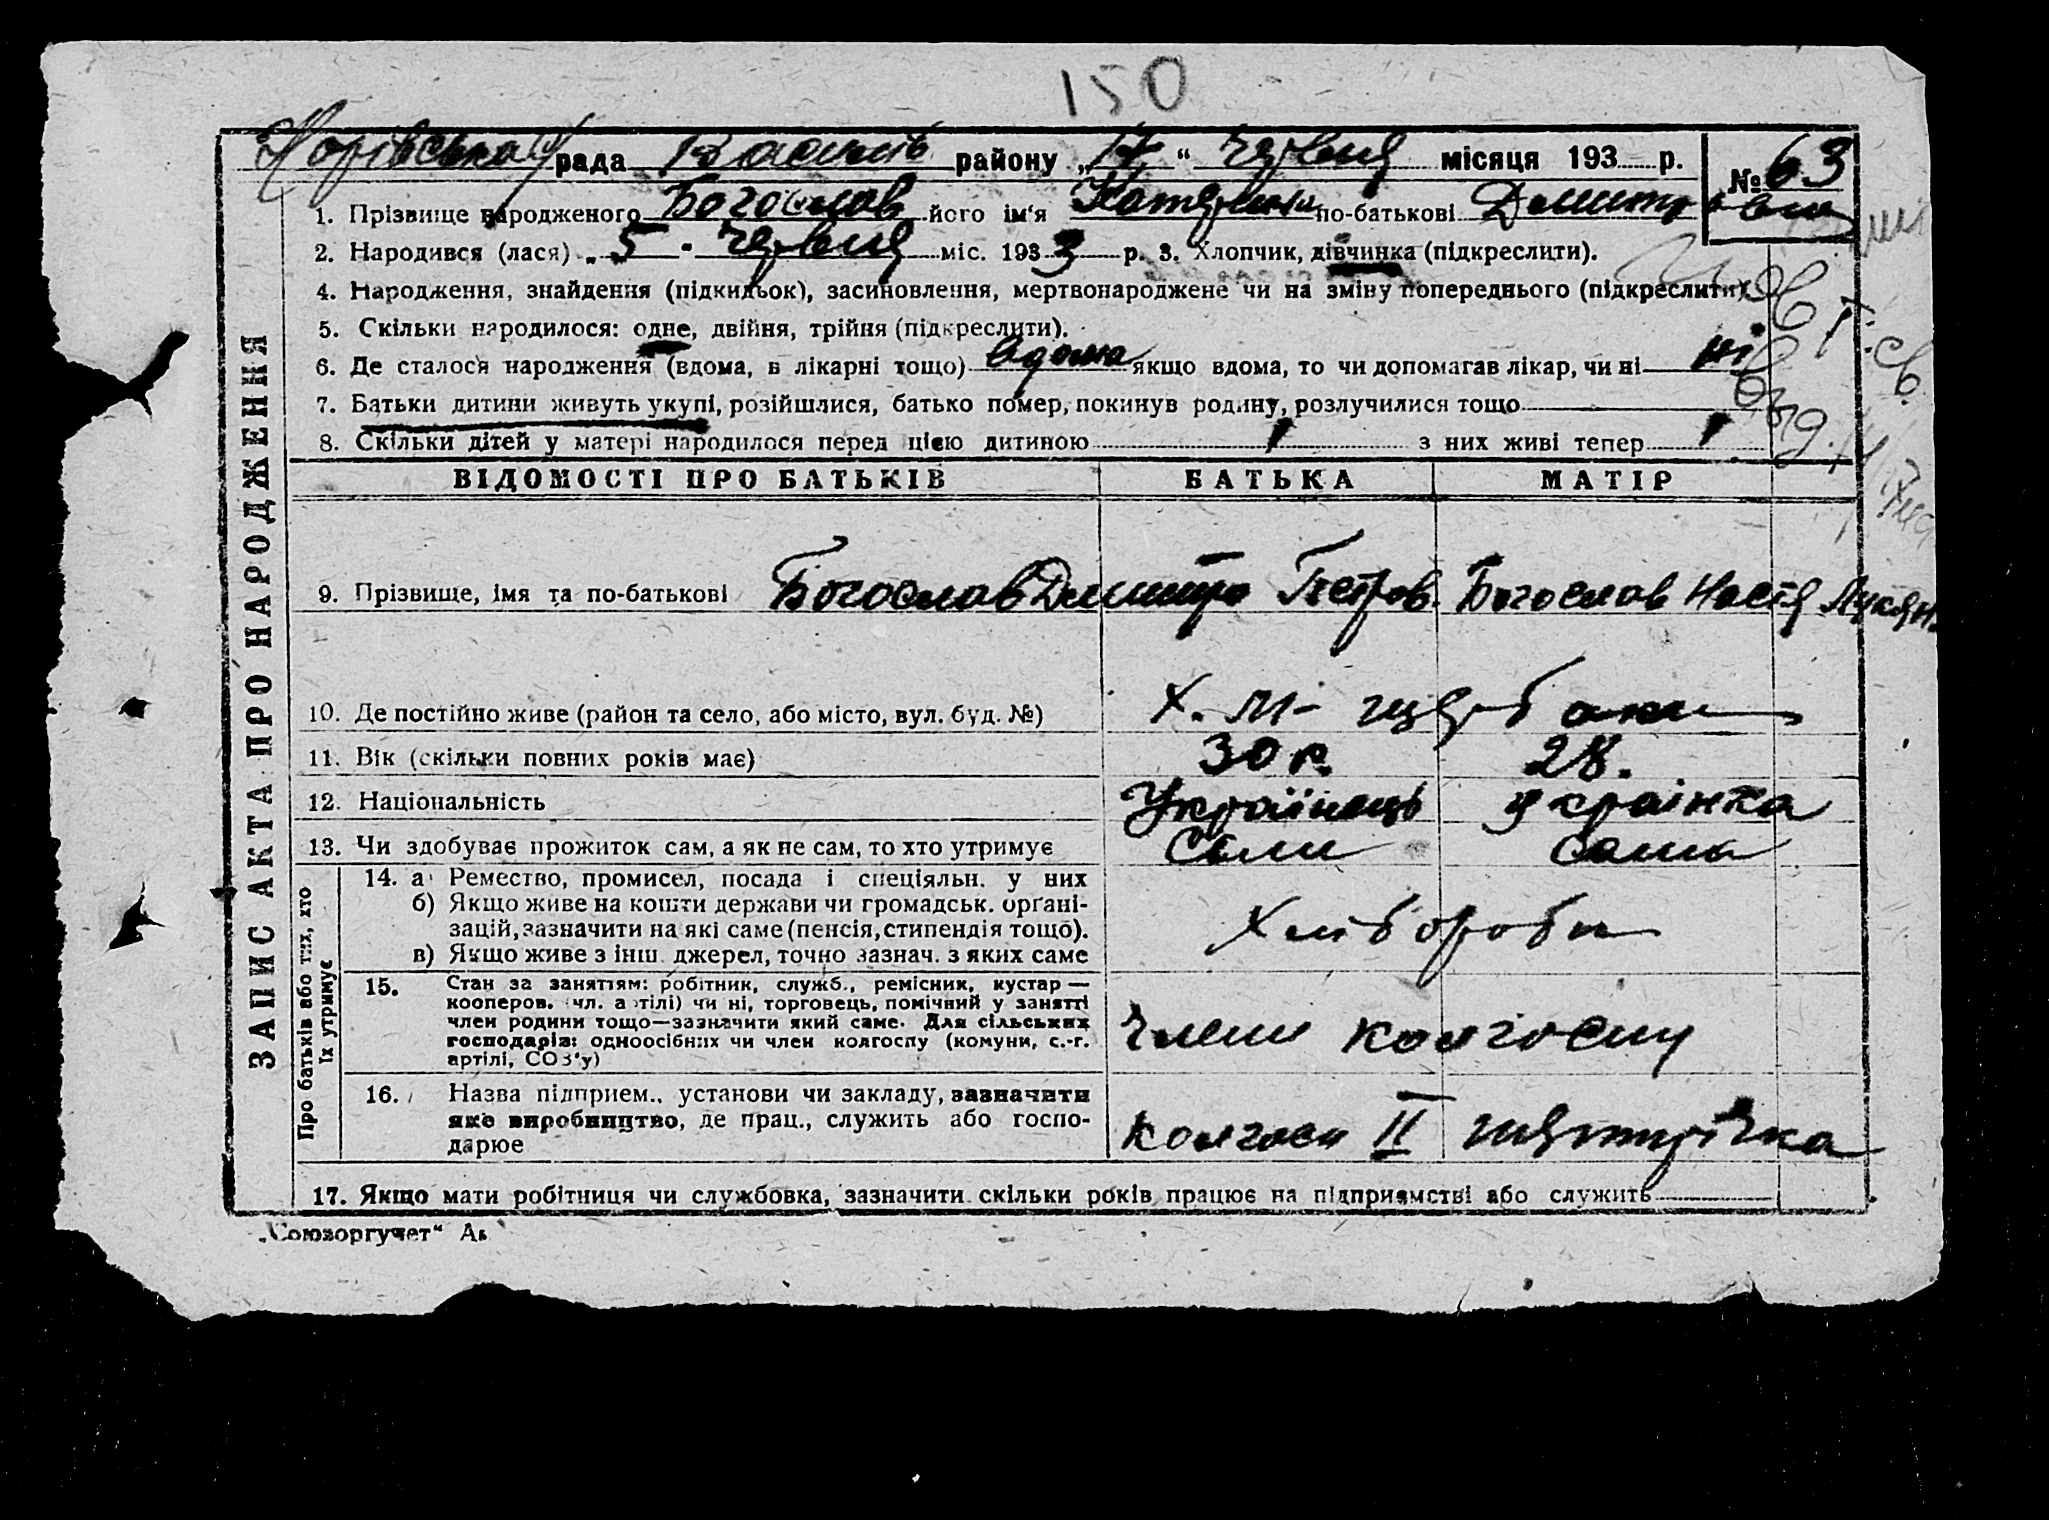 150
рада району „17“ Червня місяця 193 р. № 63
1. Прізвище народженого Богослав його ім‘я Катерина по-батькові Дмитрівна
2. Народився (лася) „5“ Червня міс. 1933 р. 3. Хлопчик, дівчинка (підкреслити).
4. Народження, знайдення (підкидьок), засиновлення, мертвонароджене чи на зміну попереднього (підкреслити)
5. Скільки народилося: одне, двійня, трійня (підкреслити).
6. Де сталося народження (вдома, в лікарні тощо) вдома якщо вдома, то чи допомагав лікар, чи ні ні
7. Батьки дитини живуть укупі, розійшлися, батько помер, покинув родину, розлучилися тощо
8. Скільки дітей у матері народилося перед цією дитиною 1 з них живі тепер 1
ЗАПИС АКТА ПРО НАРОДЖЕННЯ
ВІДОМОСТІ ПРО БАТЬКІВ БАТЬКА МАТІР
9. Прізвище, імя та по-батькові Богослав Дмитро Петров. Богослав Настя Лукян.
10. Де постійно живе (район та село, або місто, вул. буд. №) Х.
11. Вік (скільки повних років має) 30 р. 28.
12. Національність Українець українка
13. Чи здобуває прожиток сам, а як не сам, то хто утримує Сами сами
Про батьків або тих, хто їх утримує
14. а) Ремество, промисел, посада і спеціяльн. у них
б) Якщо живе на кошти держави чи громадськ. органі-
зацій, зазначити на які саме (пенсія, стипендія тощо). Хлібороби
в) Якщо живе з інш. джерел, точно зазнач. з яких саме
15. Стан за заняттям: робітник, служб., ремісник, кустар —
кооперов. (чл. артілі) чи ні, торговець, помічний у занятті
член родини тощо—зазначити який саме. Для сільських
господарів: одноосібних чи член колгоспу (комуни, с.-г.
артілі, СОЗ'у) Члени колгоспу
16. Назва підприєм., установи чи закладу, зазначити
яке виробництво, де прац., служить або госпо-
дарює Колгосп II пятирічка
17. Якщо мати робітниця чи службовка, зазначити скільки років працює на підприємстві або служить
„Союзоргучет“